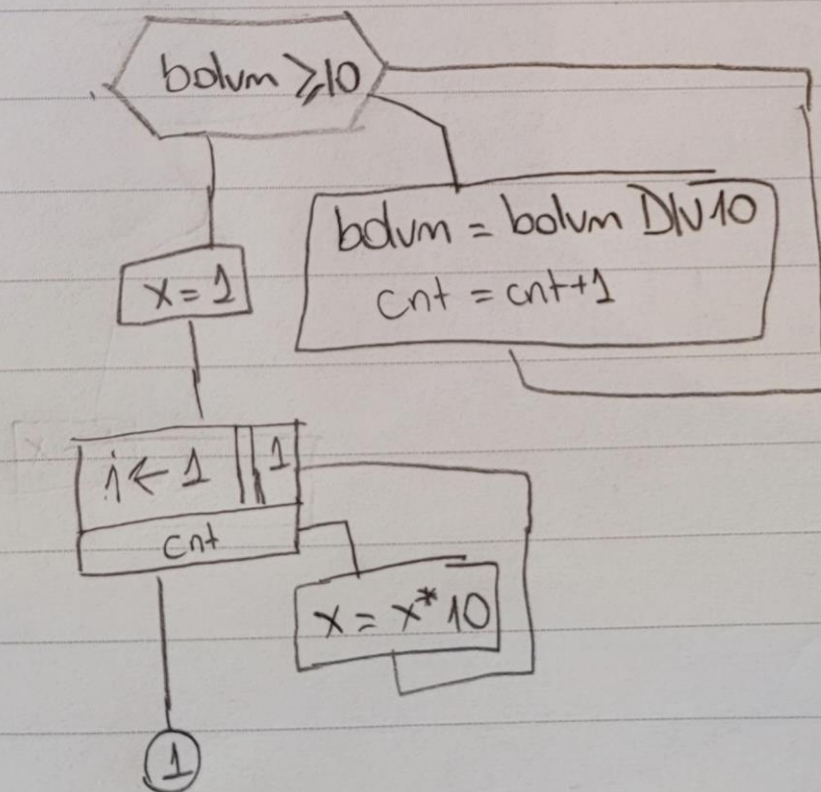 bolum ≥10
bolum = bolum DIV 10
cnt = cnt+1
x = 1
i ← 1 1
cnt
x = x* 10
1